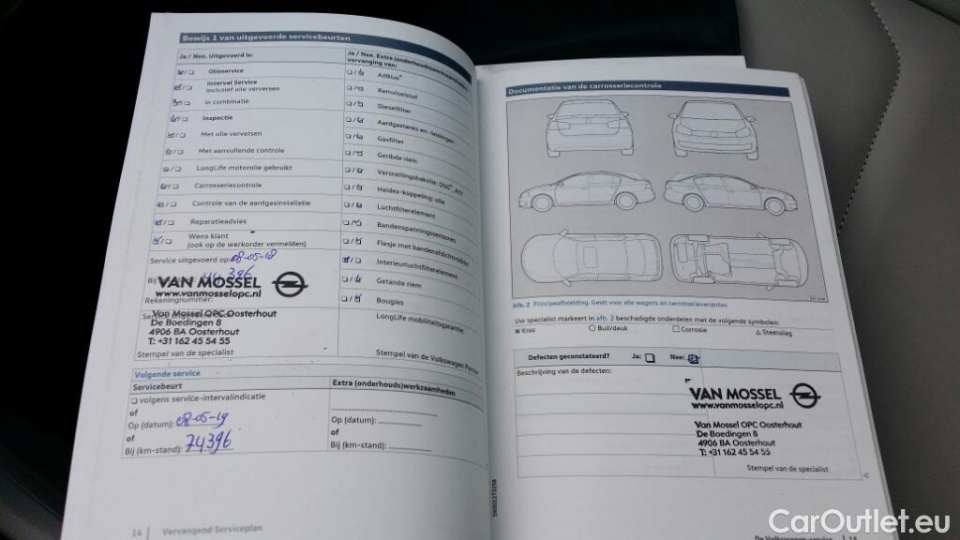 Bewijs 1 van uitgevoerde servicebeurten
Ja / Nee. Uitgevoerd is:
Olieservice
Interval Service
inclusief olie verversen
In combinatie
Inspectie
Met olie verversen
Met aanvullende controle
LongLife motorolie gebruikt
Carrosseriecontrole
Controle van de aardgasinstallatie
Reparatieadvies
Wens klant
(ook op de werkorder vermelden)
Service uitgevoerd op: 08-05-18
Bij
44 396
Rekeningnummer:
VAN MOSSEL
www.vanmosselopc.nl
Van Mossel OPC Oosterhout
De Boedingen 8
4906 BA Oosterhout
T: +31 162 45 54 55
Stempel van de specialist
Ja / Nee. Extra (onderhouds)werkzaamheden
vervanging van:
AdBlue®
Remvloeistof
Dieselfilter
Aardgastanks en -leidingen
Gasfilter
Geribde riem
Versnellingsbakolie: DSG®,
Haldex-koppeling: olie
Luchtfilterelement
Bandenspanningssensoren
Flesje met bandenafdichtmiddel
Interieurluchtfilterelement
Getande riem
Bougies
LongLife mobiliteitsgarantie:
Stempel van de Volkswagen Partner
Volgende service
Servicebeurt
Extra (onderhouds)werkzaamheden
volgens service-intervalindicatie
of
Op (datum): 08-05-19
of
Bij (km-stand): 74396
Op (datum):
of
Bij (km-stand):
14
Vervangend Serviceplan
Documentatie van de carrosseriecontrole
Afb. 2 Principeafbeelding. Geldt voor alle wagens en carrosserievarianten.
Uw specialist markeert in afb. 2 beschadigde onderdelen met de volgende symbolen:
Kras
Buil/deuk
Corrosie
Steenslag
Defecten geconstateerd?
Ja:
Nee:
Beschrijving van de defecten:
VAN MOSSEL
www.vanmosselopc.nl
Van Mossel OPC Oosterhout
De Boedingen 8
4906 BA Oosterhout
T: +31 162 45 54 55
Stempel van de specialist
De Volkswagen-service
15
CarOutlet.eu